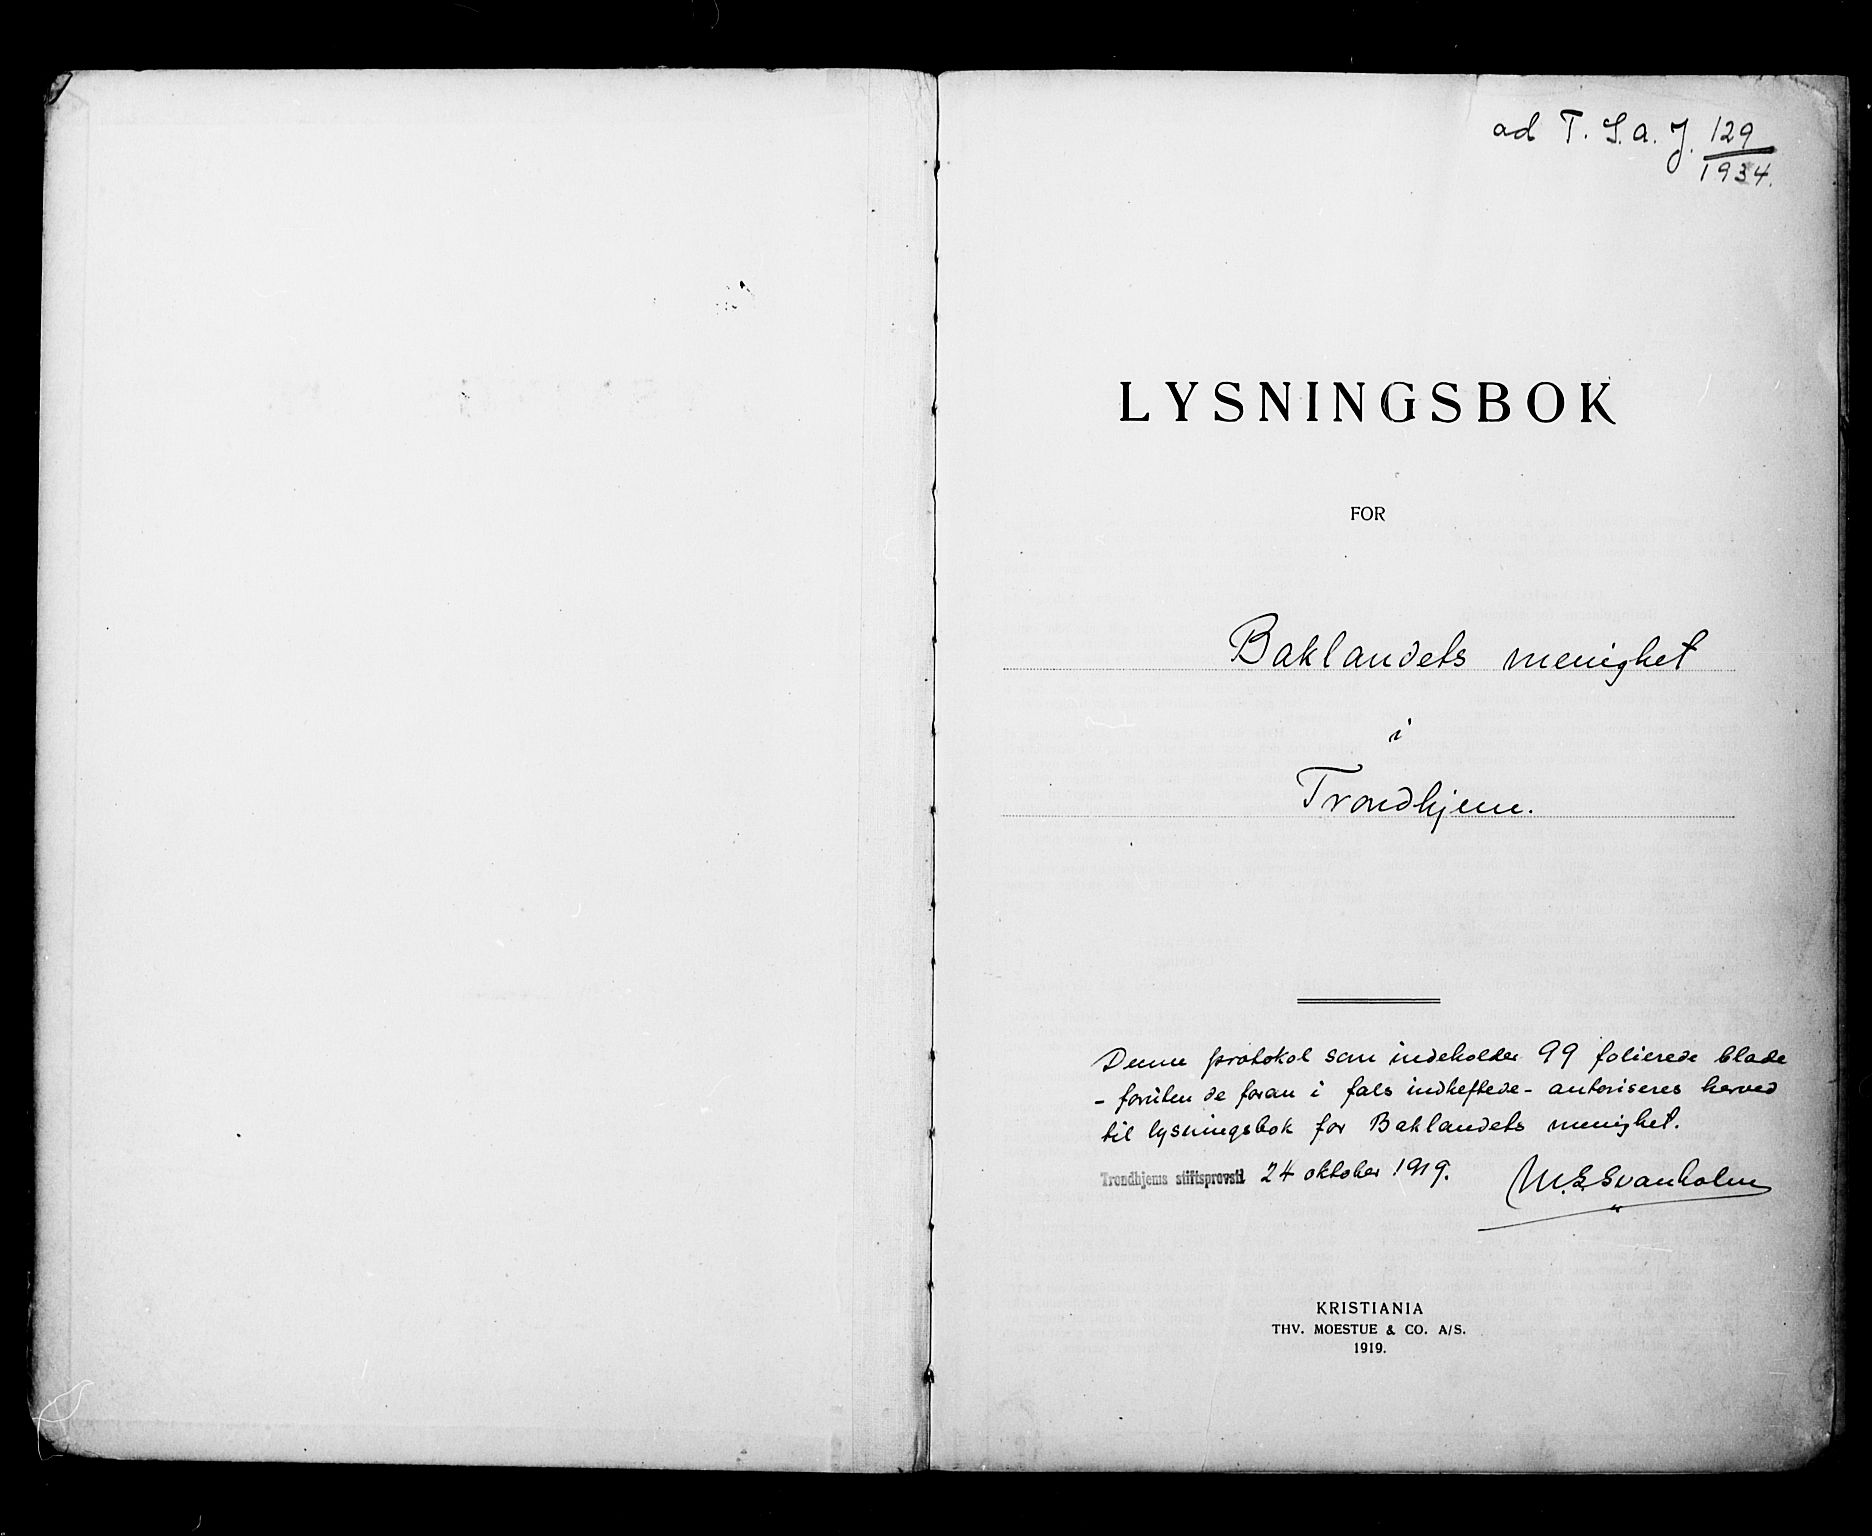 ad T. S. a. J. 129
1934.
LYSNINGSBOK
FOR
Baklandets menighet
i
Trondhjem.
Denne protokol som indeholder 99 folierede blade
- foruten de foran i fals indheftede - autoriseres herved
til lysningsbok for Baklandets menighet.
Trondhjems stiftsprovsti 24 oktober 1919. M. E. Svanholm
KRISTIANIA
THV. MOESTUE & CO. A/S.
1919.